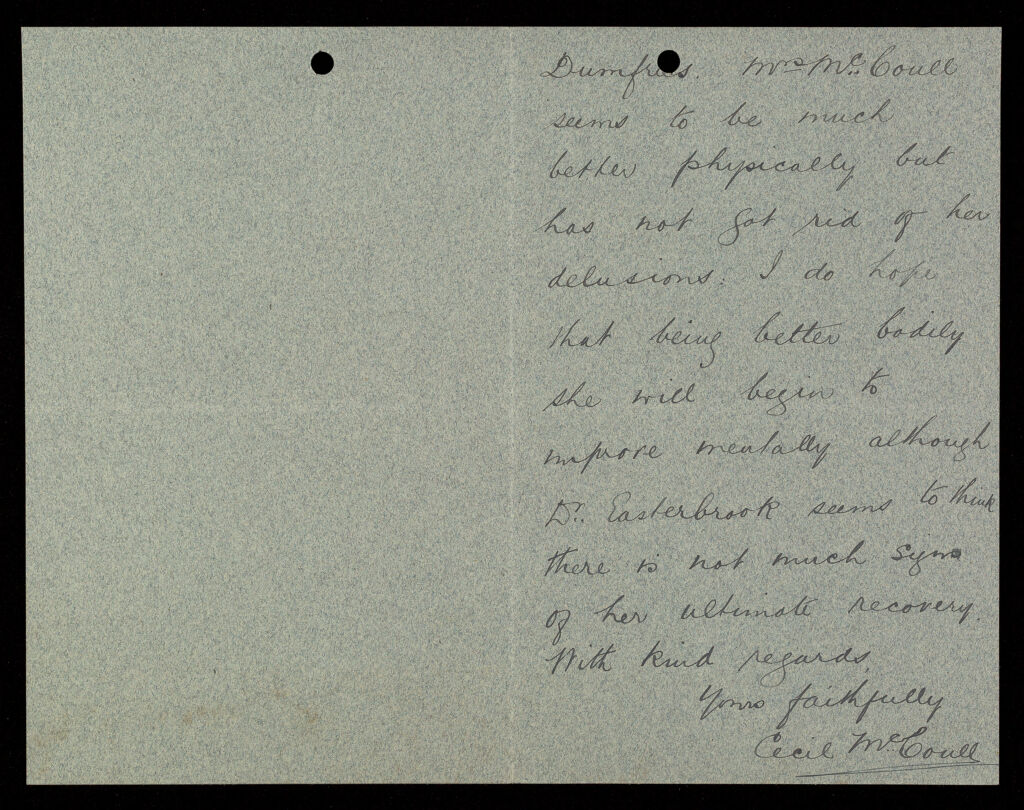 Dumfries. Mrs Mc.Coull
seems to be much
better physically but
has not got rid of her
delusions. I do hope
that being better bodily
she will begin to
improve mentally although
Dr. Easterbrook seems to think
there is not much signs
of her ultimate recovery.
With kind regards,
Yours faithfully
Cecil McCoull